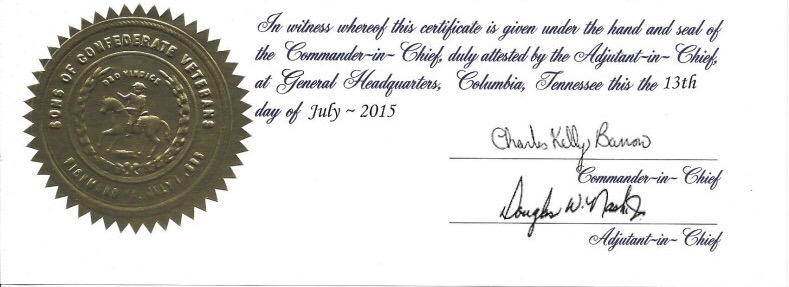 SONS OF CONFEDERATE VETERANS
DEO VINDICE
In witness whereof this certificate is given under the hand and seal of
the Commander~in~ Chief, duly attested by the Adjutant~in~ Chief,
at General Headquarters, Columbia, Tennessee this the 13th
day of July ~ 2015
Charles Kelly Barrow
Commander~in~ Chief
Douglas W. Nash Jr.
Adjutant~in~ Chief